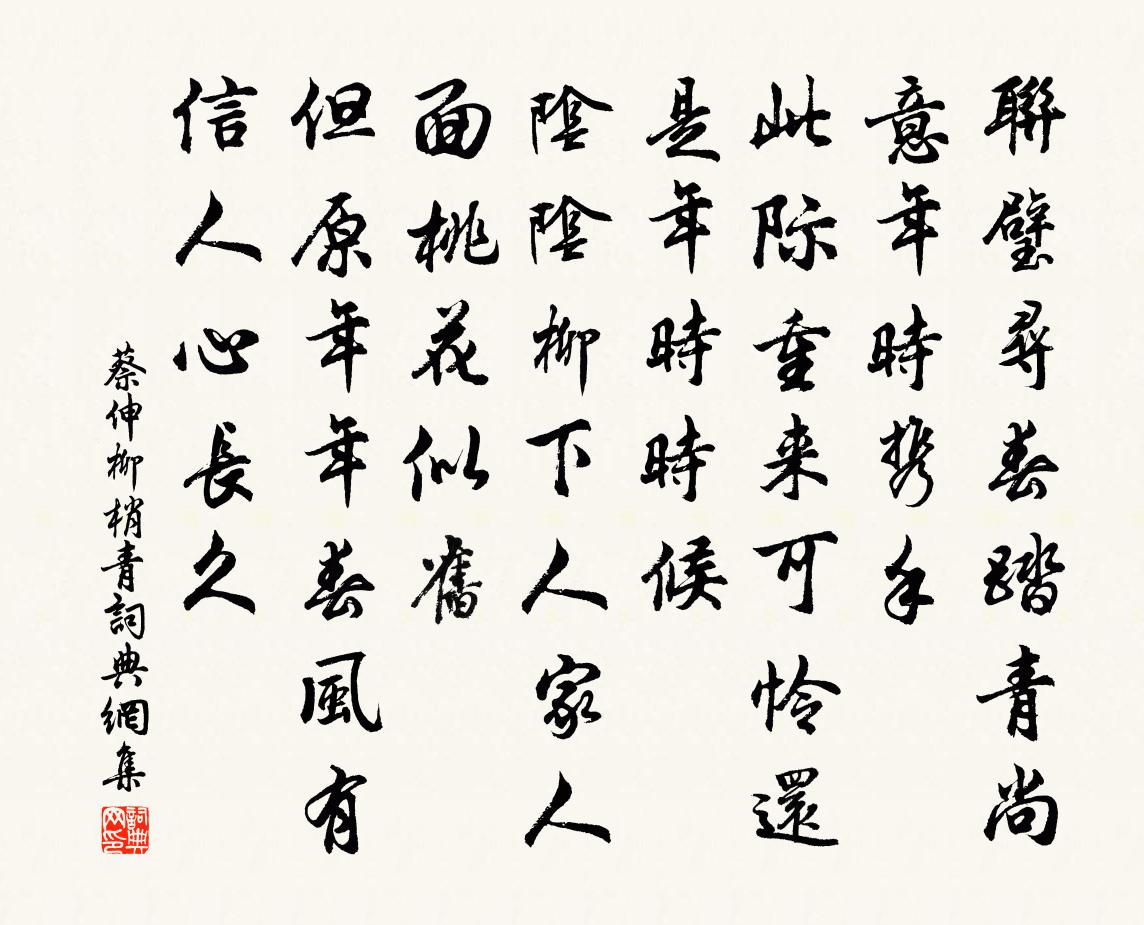 聯璧尋春踏青尚
意年時携手
此际重来可怜還
是年時時候
陰陰柳下人家人
面桃花似舊
但原年年春風有
信人心長久
蔡伸柳梢青詞典網集
詞典网印